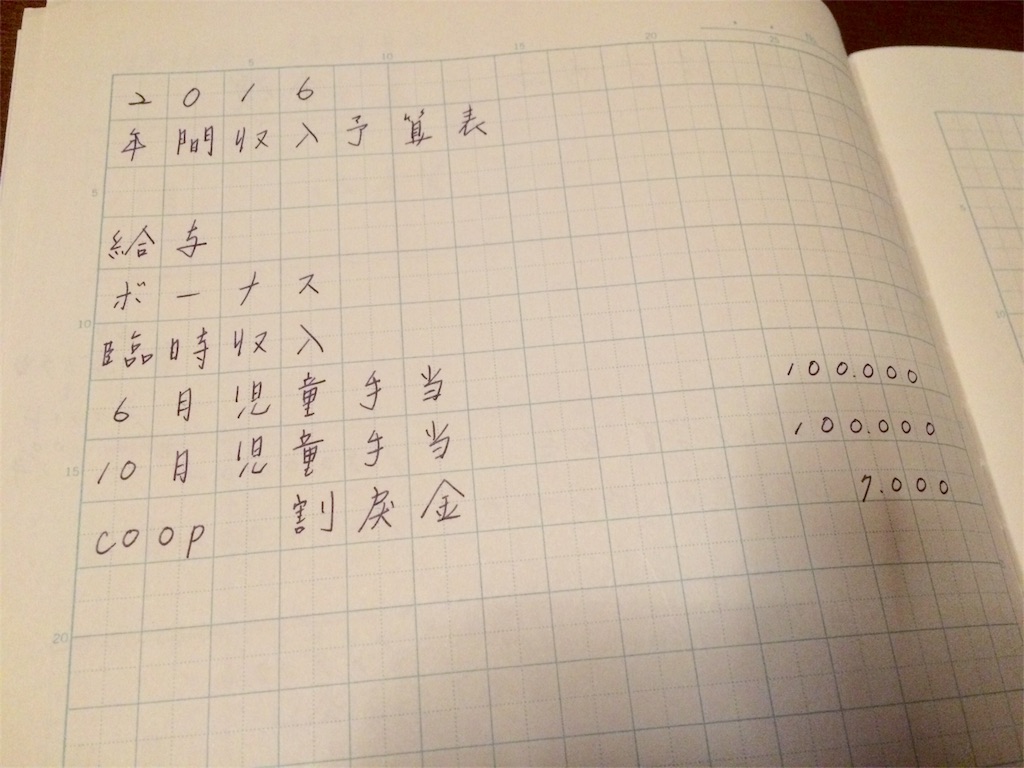 2016
年間収入予算表
給与
ボーナス
臨時収入
6月児童手当 100.000
10月児童手当 100.000
coop 割戻金 7.000